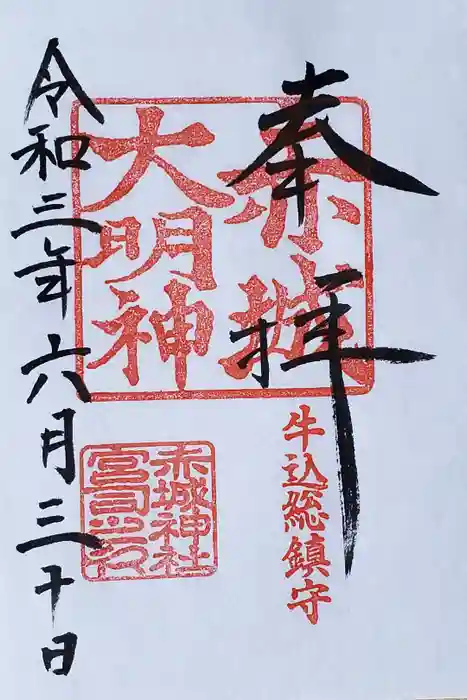 奉拝
赤城
大明神
牛込総鎮守
赤城神社
宮司之印
令和三年六月三十日